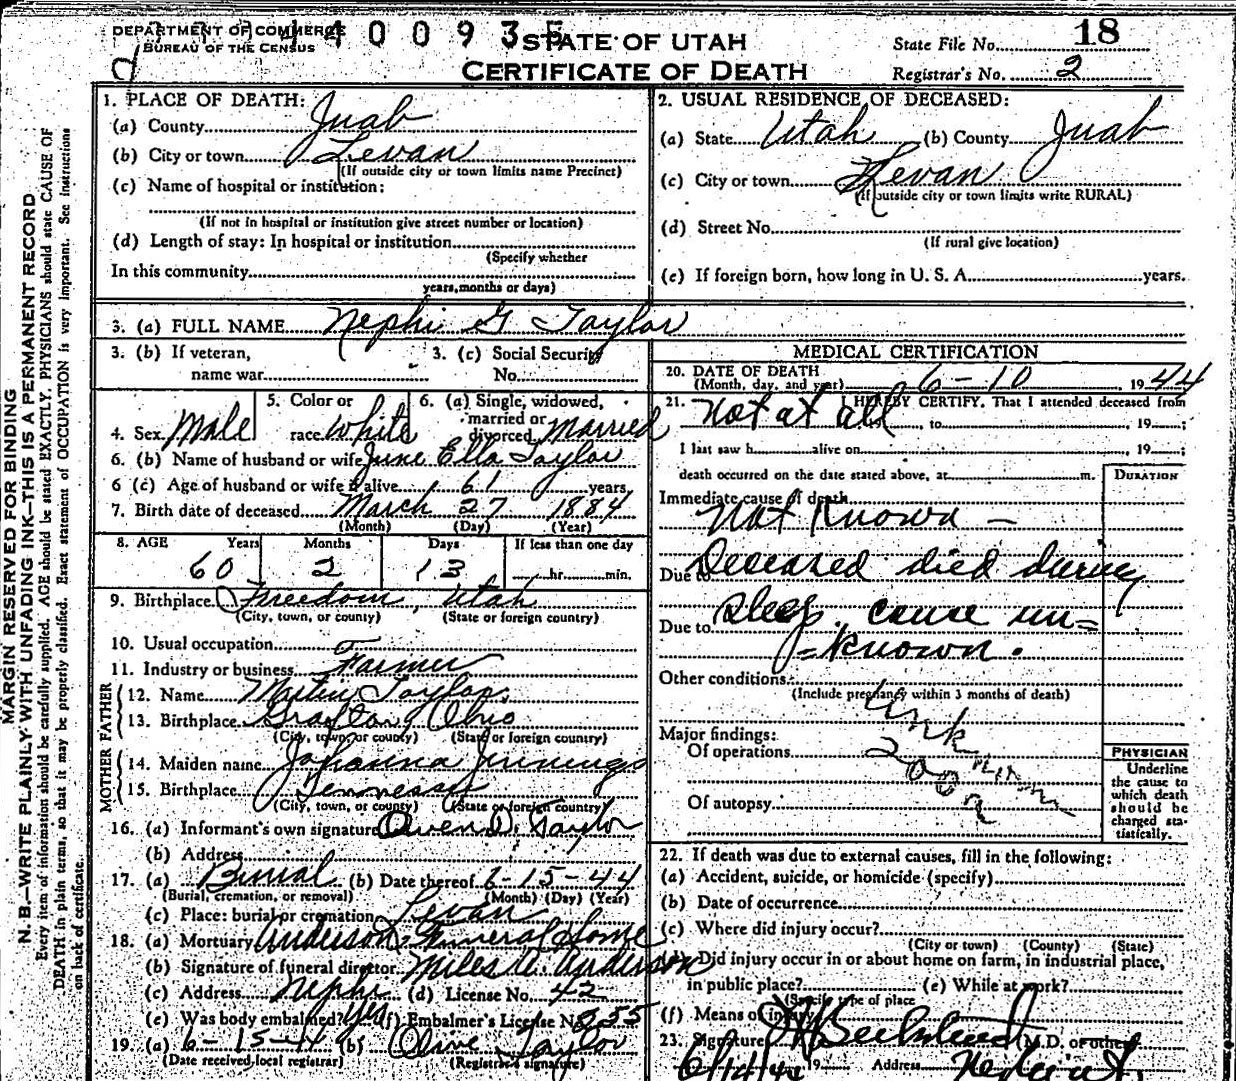 DEPARTMENT OF COMMERCE
BUREAU OF THE CENSUS
STATE OF UTAH
CERTIFICATE OF DEATH
State File No. 18
Registrar's No. 2
MARGIN RESERVED FOR BINDING
N. B.—WRITE PLAINLY WITH UNFADING INK—THIS IS A PERMANENT RECORD
Every item of information should be carefully supplied. AGE should be stated EXACTLY. PHYSICIANS should state CAUSE OF
DEATH in plain terms, so that it may be properly classified. Exact statement of OCCUPATION is very important. See instructions
on back of certificate.
1. PLACE OF DEATH:
(a) County Juab
(b) City or town Levan
(If outside city or town limits name Precinct)
(c) Name of hospital or institution:
(If not in hospital or institution give street number or location)
(d) Length of stay: In hospital or institution
(Specify whether
In this community
years, months or days)
2. USUAL RESIDENCE OF DECEASED:
(a) State Utah (b) County Juab
(c) City or town Levan
(If outside city or town limits write RURAL)
(d) Street No.
(If rural give location)
(e) If foreign born, how long in U. S. A. years.
3. (a) FULL NAME Nephi G Taylor
3. (b) If veteran,
name war
3. (c) Social Security
No.
4. Sex Male
5. Color or
race White
6. (a) Single, widowed,
married or
divorced Married
6. (b) Name of husband or wife June Ella Taylor
6 (c) Age of husband or wife if alive 61 years
7. Birth date of deceased March 27 1884
(Month) (Day) (Year)
8. AGE Years Months Days If less than one day
60 2 13 hr. min.
9. Birthplace Freedom, Utah
(City, town, or county) (State or foreign country)
10. Usual occupation
11. Industry or business Farmer
FATHER
12. Name Taylor
13. Birthplace Grafton, Ohio
(City, town, or county) (State or foreign country)
MOTHER
14. Maiden name Johanna Jennings
15. Birthplace Tennessee
(City, town, or county) (State or foreign country)
16. (a) Informant's own signature Owen D. Taylor
(b) Address
17. (a) Burial (b) Date thereof 6-15-44
(Burial, cremation, or removal) (Month) (Day) (Year)
(c) Place: burial or cremation Levan
18. (a) Mortuary Anderson Funeral Home
(b) Signature of funeral director Miles A. Anderson
(c) Address Nephi (d) License No. 42
(e) Was body embalmed? Yes (f) Embalmer's License No. 255
19. (a) 6-15-44 (b) Olive Taylor
(Date received local registrar) (Registrar's signature)
MEDICAL CERTIFICATION
20. DATE OF DEATH
(Month, day, and year) 6-10, 1944
21. I HEREBY CERTIFY, That I attended deceased from
Not at all, to , 19 ;
I last saw h alive on , 19 ;
death occurred on the date stated above, at m.
DURATION
Immediate cause of death
Not Known -
Due to Deceased died during
Due to sleep. cause un=
=known.
Other conditions
(Include pregnancy within 3 months of death)
Unk
Major findings:
Of operations
200
Of autopsy
PHYSICIAN
Underline
the cause to
which death
should be
charged sta-
tistically.
22. If death was due to external causes, fill in the following:
(a) Accident, suicide, or homicide (specify)
(b) Date of occurrence
(c) Where did injury occur?
(City or town) (County) (State)
Did injury occur in or about home on farm, in industrial place,
in public place? (e) While at work?
(Specify type of place
(f) Means of injury
23. Signature Beckstead (M.D. or other
6/14/44 19 Address Nephi Ut.